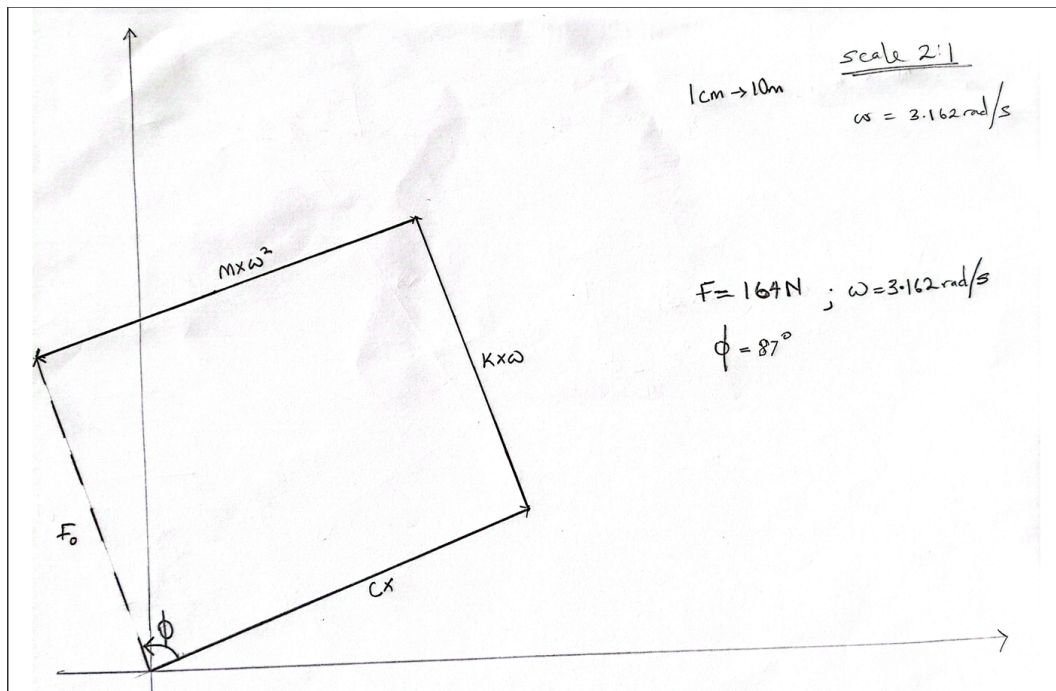 scale 2:1
1cm → 10m
ω = 3.162 rad/s
M×ω²
F = 164N ; ω = 3.162 rad/s
ϕ = 87°
K×ω
F₀
C×
ϕ